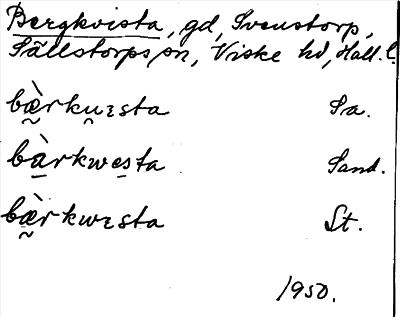 Bergkvista, gd, Svenstorp,
Sällstorps sn, Viske hd, Hall. l.
bæ̀rku̯ɪsta Sa.
bàrkwesta Sand.
bæ̀rkwɪsta St.
1950.